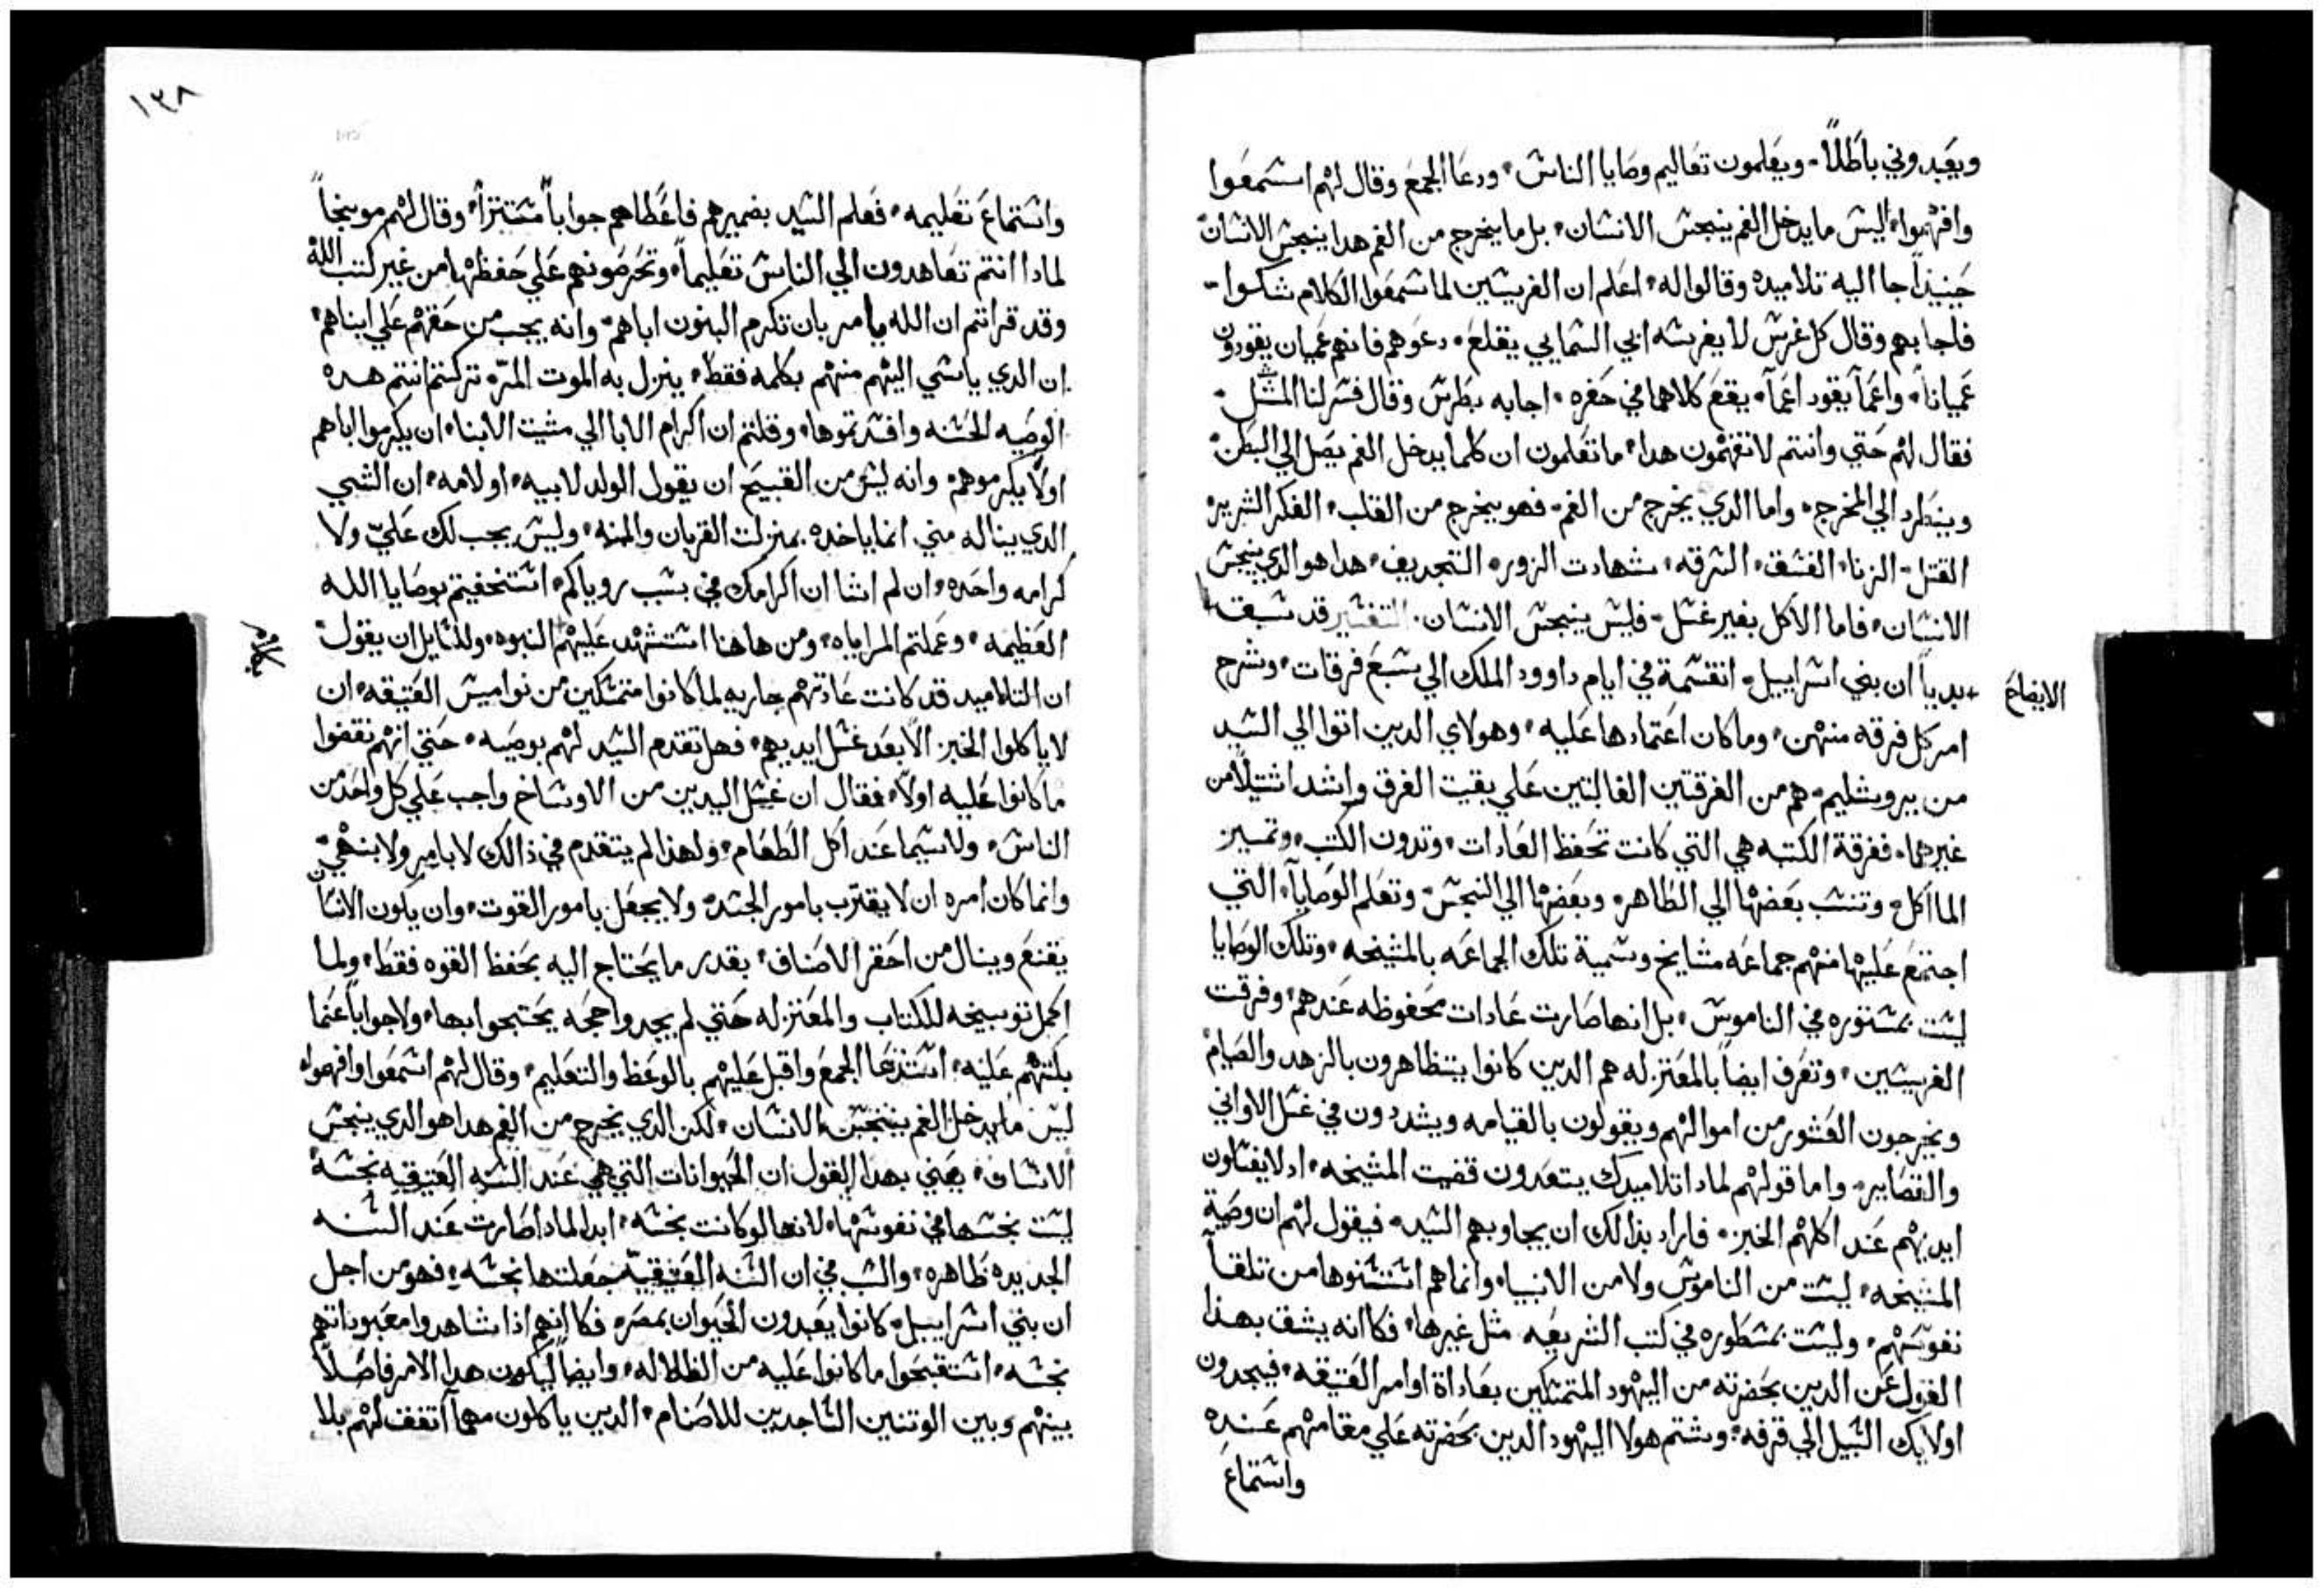 ويعبدوني باطلاً. ويعلمون تعاليم وصايا الناس. ودعا الجمع وقال لهم اسمعوا
وافهموا. ليس ما يدخل الفم ينجس الانسان. بل ما يخرج من الفم هدا ينجس الانسان
حينيداً جا اليه تلاميده وقالوا له. اعلم ان الفريسيين لما سمعوا الكلام شكوا.
فاجابهم وقال كل غرس لا يغرسه ابي السمايي يقلع. دعوهم فانهم عميان يقودون
عمياناً. واعماً يقود اعماً. يقع كلاهما في حفره. اجابه بطرس وقال فسر لنا المثل.
فقال لهم حتي وانتم لا تفهمون هدا. ما تعلمون ان كلما يدخل الفم يصل الي البطن
وينطرد الي المخرج. واما الدي يخرج من الفم. فهو يخرج من القلب. الفكر الشريره
القتل. الزنا. الفسق. السرقه. شهادت الزور. التجديف. هدا هو الدي ينجس
الانسان. فاما الاكل بغير غسل. فليس ينجس الانسان. التفسير قد سبق
الايضاح
بدياً ان بني اسراييل. انقسمة في ايام داوود الملك الي سبع فرقات. وشرح
امر كل فرقه منهن. وما كان اعتمادها عليه. وهولاي الدين اتوا الي السيد
من يروشليم. هم من الفرقتين الغالبتين علي بقيت الفرق واشد انتيلاً من
غيرهما. ففرقة الكتبه هي التي كانت تحفظ العادات. وتدون الكتب. وتميز
الماأكل. وتنسب بعضها الي الطاهر. وبعضها الي النجس. وتعلم الوصايا. التي
اجتمع عليها منهم جماعه مشايخ وسمية تلك الجماعه بالمشيخه. وتلك الوصايا
ليست بمسنوره في الناموس. بل انها صارت عادات محفوظه عندهم. وفرقت
الفريسيين. وتعرف ايضاً بالمعتزله هم الدين كانوا يتظاهرون بالزهد والصيام
ويخرجون العشور من اموالهم ويقولون بالقيامه ويشددون في غسل الاواني
والقصاير. واما قولهم لمادا تلاميدك يتعدون قضيت المشيخه. اد لا يغسلون
ايديهم عند اكلهم الخبز. فاراد بذالك ان يجاوبهم السيد. فيقول لهم ان وصية
المشيخه. ليست من الناموس ولا من الانبيا. وانما هم استسنوها من تلقآ
نفوسهم. وليست بمسطوره في كتب الشريعه مثل غيرها. فكاانه يشق بهذا
القول عن الدين بحضرته من اليهود المتمسكين بعاداة اوامر العتيقه. فيجدون
اولايك السبيل الي قرفه. وشتم هولا اليهود الدين بحضرته علي مقامهم عنده
واستماع
١٣٨
واستماع تعليمه. فعلم السيد بضميرهم فاعطاهم جواباً مستتزاً. وقال لهم موبخاً
لمادا انتم تعاهدون الي الناس تعليماً. وتحرصونهم علي حفظها من غير كتب الله
وقد قراتم ان الله يامر بان تكرم البنون اباهم. وانه يجب من حقهم علي ابناهم
ان الدي ياسي اليهم منهم بكلمه فقط. ينزل به الموت المرّ. تركتم انتم هده
الوصيه الحسنه وافسدتموها. وقلتم ان اكرام الابا الي مشيت الابنا. ان يكرموا اباهم
اولا يكرموهم. وانه ليس من القبيح ان يقول الولد لابيه. او لامه. ان الشي
الدي يناله مني انما ياخده بمنزلت القربان والمنه. وليس يجب لك عليّ ولا
كرامه واحده. ان لم اشا ان اكرامك في بسب روياكم. استخفيتم بوصايا الله
العظيمه. وعملتم المراياه. ومن هاهنا استشهد عليهم النبوه. وللسايل ان يقول
ان التلاميد قد كانت عادتهم جاريه لما كانوا متمسكين من نواميس العتيقه. ان
لا ياكلوا الخبز الا بعد غسل ايديهم. فهل تقدم السيد لهم بوصيه. حتي انهم نقضوا
ما كانوا عليه اولاً. فقال ان غسل اليدين من الاوساخ واجب علي كل واحد من
الناس. ولاسيما عند اكل الطعام. ولهذا لم يتقدم في ذالك لا بامر ولا بنهي
وانما كان امره ان لا يقترب بامور الجسد. ولا يحفل بامور القوت. وان يكون الانسان
يقنع وينال من احقر الاصناف. بقدر ما يحتاج اليه بحفظ القوه فقط. ولما
اكمل توبيخه للكتاب والمعتزله حتي لم يجدوا حجه يحتجوا بها. ولا جواباً عما
بكتهم عليه. استدعا الجمع واقبل عليهم بالوعظ والتعليم. وقال لهم اسمعوا وافهموا.
ليس ما يدخل الفم ينجس الانسان. لكن الدي يخرج من الفم هدا هو الدي ينجس
الانسان. يعني بهدا القول ان الحيوانات التي هي عند السنه العتيقيه نجسه
ليست نجسها في نفوسها. لانها لو كانت نجسه. ابدا لمادا صارت عند السنه
الجديده طاهره. والسبب في ان السنه العتيقيه جعلتها نجسه. فهو من اجل
ان بني اسراييل. كانوا يعبدون الحيوان بمصر. فكاانهم اذا شاهدوا معبوداتهم
نجسه. استقبحوا ما كانوا عليه من الظلاله. وايضاً ليكون هدا الامر فاصلاً
بينهم وبين الوتنين الساجدين للاصنام. الدين ياكلون مهما اتفق لهم بلا